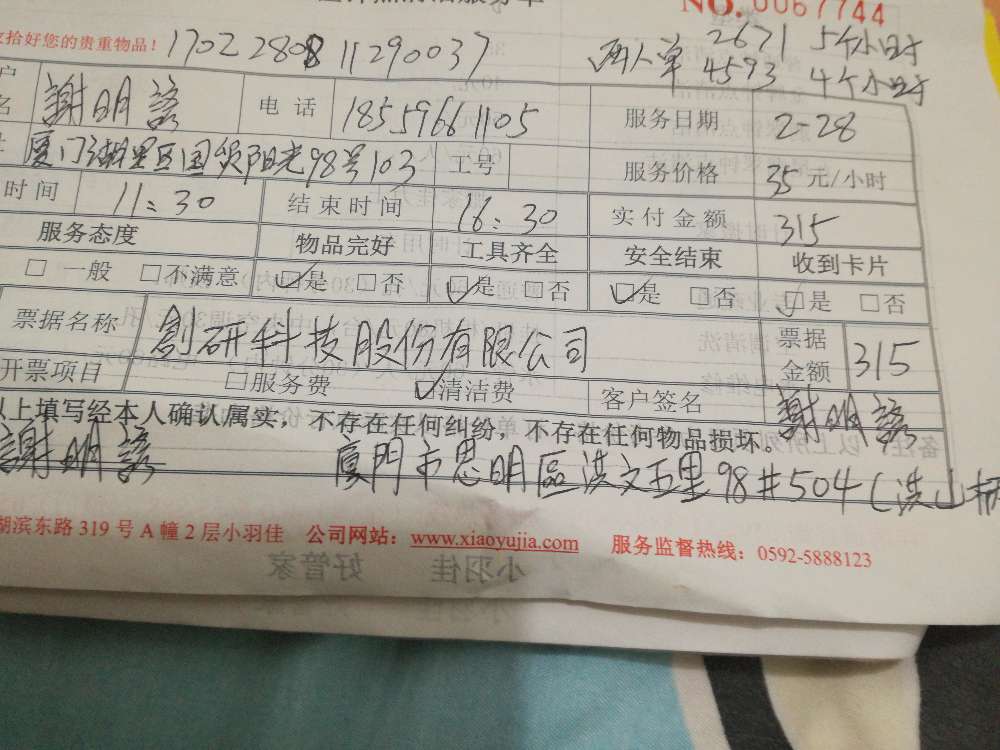 NO.0067744
拾好您的贵重物品！ 1702280811290037 两人单 2671 5个小时
4593 4个小时
名 謝明諺 电话 18559661105 服务日期 2-28
厦门湖里区国贸阳光98号103 工号 服务价格 35元/小时
时间 11:30 结束时间 16:30 实付金额 315
服务态度 物品完好 工具齐全 安全结束 收到卡片
□一般 □不满意 ☑是 □否 ☑是 □否 ☑是 □否 ☑是 □否
票据名称 創研科技股份有限公司 票据金额 315
开票项目 □服务费 ☑清洁费 客户签名 謝明諺
以上填写经本人确认属实，不存在任何纠纷，不存在任何物品损坏。
謝明諺 廈門市思明區洪文五里98#504(洪山柄
湖滨东路 319 号 A 幢 2 层小羽佳 公司网站：www.xiaoyujia.com 服务监督热线：0592-5888123